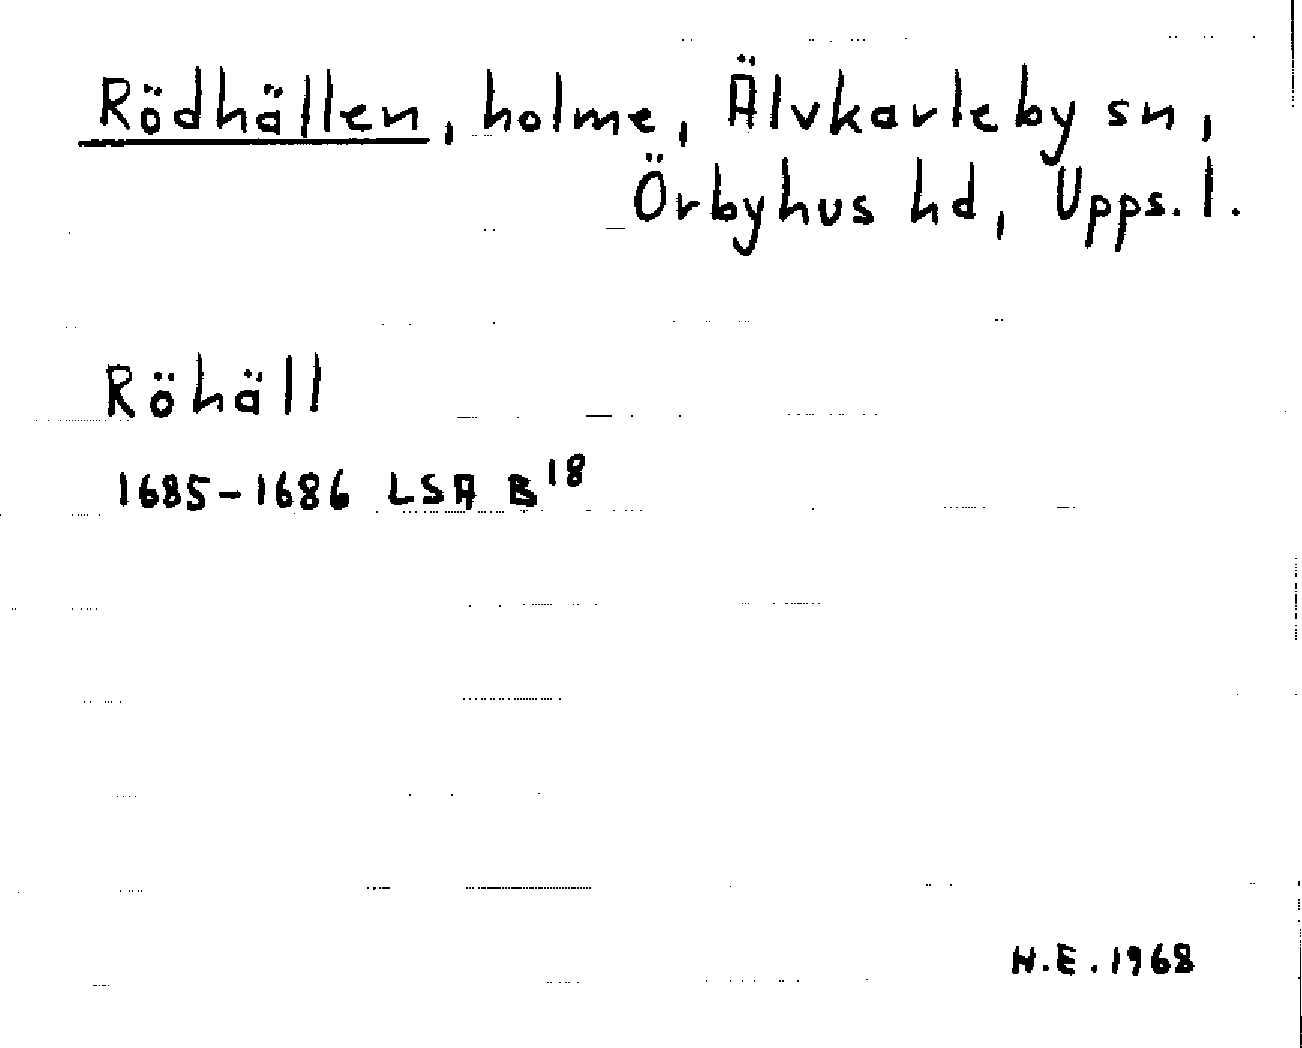 Rödhällen, holme, Älvkarleby sn,
Örbyhus hd, Upps. l.
Röhäll
1685-1686 LSA B18
H.E. 1968